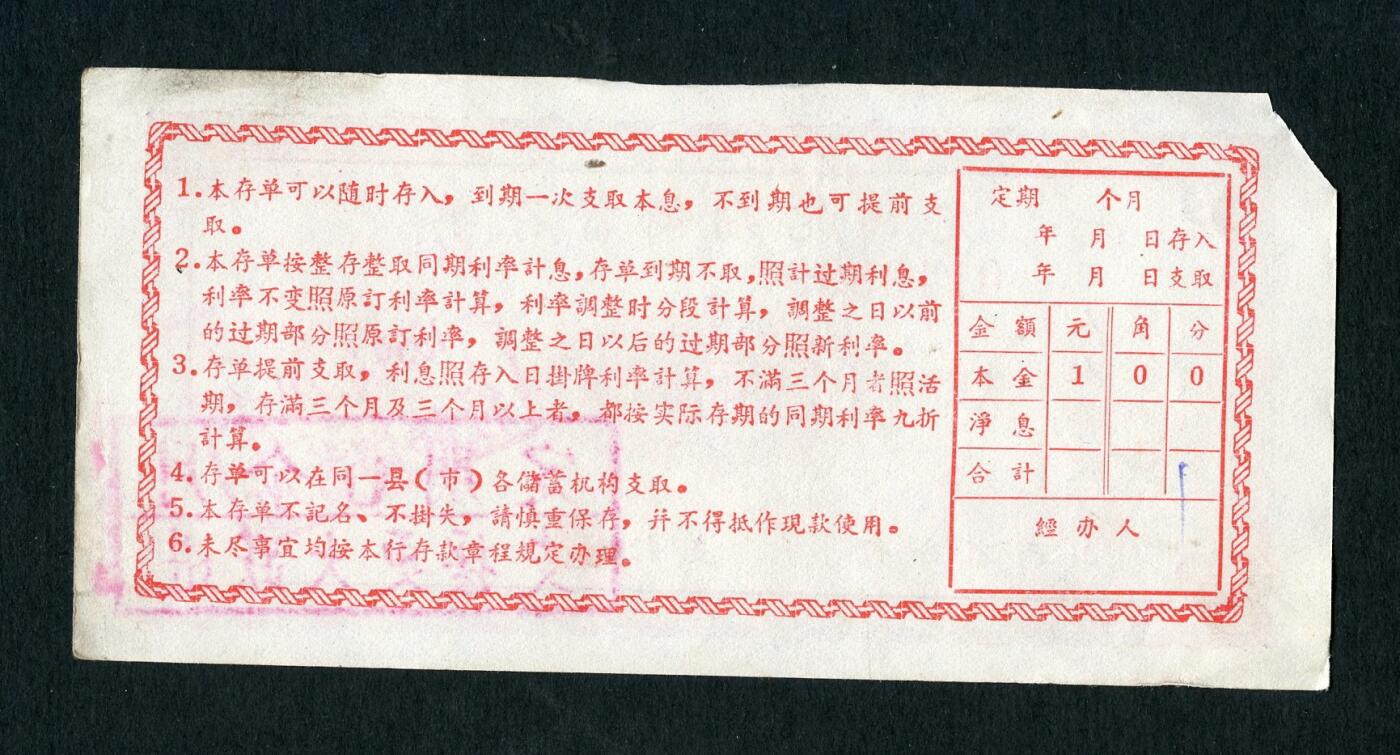 1.本存单可以随时存入，到期一次支取本息，不到期也可提前支
取。
2.本存单按整存整取同期利率計息，存单到期不取，照計过期利息，
利率不变照原訂利率計算，利率調整时分段計算，調整之日以前
的过期部分照原訂利率，調整之日以后的过期部分照新利率。
3.存单提前支取，利息照存入日掛牌利率計算，不滿三个月者照活
期，存滿三个月及三个月以上者，都按实际存期的同期利率九折
計算。
4.存单可以在同一县（市）各儲蓄机构支取。
5.本存单不記名、不掛失，請慎重保存，幷不得抵作現款使用。
6.未尽事宜均按本行存款章程規定办理。
定期 个月
年 月 日存入
年 月 日支取
金額 元 角 分
本金 1 0 0
淨息
合計
經办人